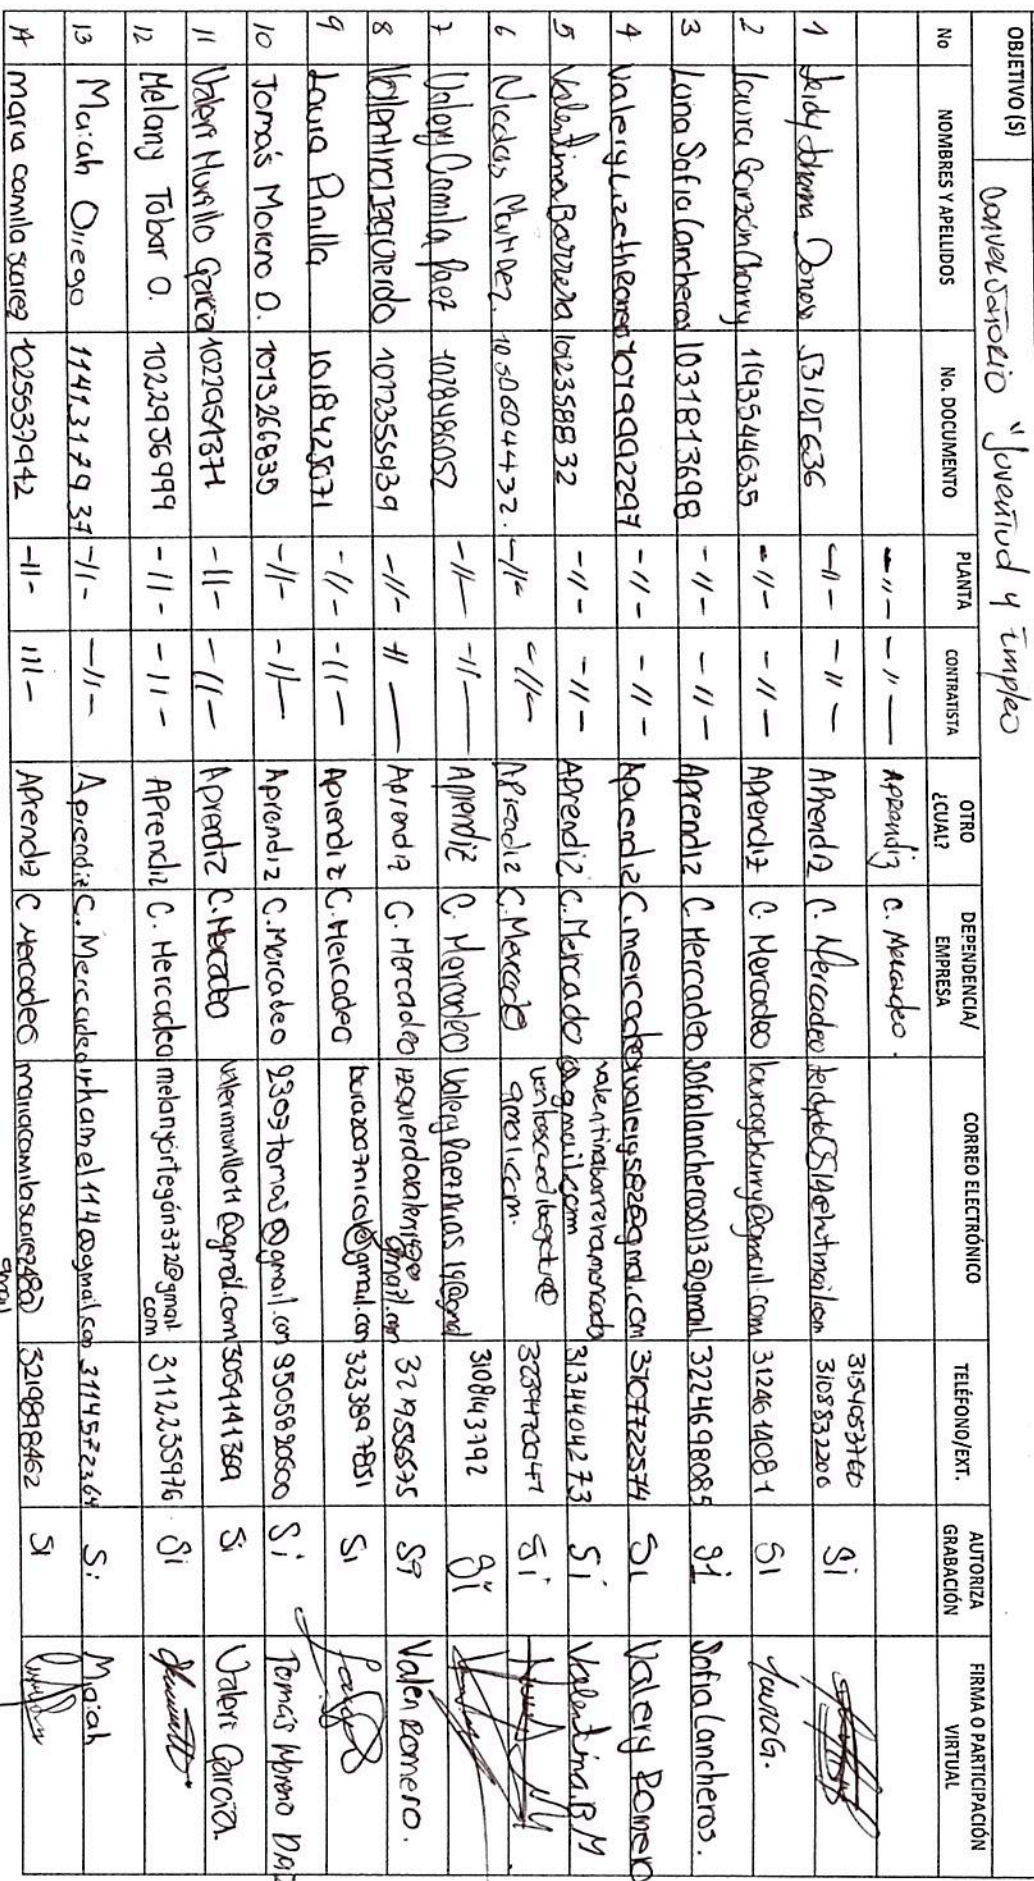 OBJETIVO (S) Conversatorio "Juventud y Empleo
No NOMBRES Y APELLIDOS No. DOCUMENTO PLANTA CONTRATISTA OTRO ¿CUAL? DEPENDENCIA/ EMPRESA CORREO ELECTRÓNICO TELÉFONO/EXT. AUTORIZA GRABACIÓN FIRMA O PARTICIPACIÓN VIRTUAL
-"- -"- Aprendiz C. Mercadeo. 3154053760
1 Leidy Johana Donoso 53105636 -"- -"- Aprendiz C. Mercadeo 3108832206 Si
2 Laura Garzón Charry 1193544635 -"- -"- Aprendiz C. Mercadeo lauragcharry@gmail.com 3124614081 Si LauraG.
3 Luna Sofia Lancheros 1031813698 -"- -"- Aprendiz C. Mercadeo sofialancheros013@gmail 3224698085 Si Sofia Lancheros.
4 Valery Lizeth Romero 1019992297 -"- -"- Aprendiz C. mercadeo valerys828@gmail.com 3107722574 Si Valery Romero
5 Valentina Barrera 1012358832 -//- -//- Aprendiz C. Mercadeo valentinabarreramercado @gmail.com 3134404273 Si Valentina.B M
6 Nicolas Martinez. 10.50604432. -//- -//- Aprendiz C. Mercado gmail.com. 3239470047 Si
7 Valery Camila Paez 1028486052 -//- -//- Aprendiz C. Mercadeo 3108143792 Si
8 Valentina Izquierdo 1072355939 -//- // Aprendiz C. Mercadeo 3219586575 Si Valen Romero.
9 Laura Pinilla 1018425071 -//- -//- Aprendiz C. Mercadeo laura2007nicol@gmail.com 3233897851 Si
10 Tomás Moreno D. 1013266835 -//- -//- Aprendiz C. Mercadeo 2309tomas@gmail.com 3505890600 Si Tomás Moreno
11 Valeri Murillo Garcia 1022951371 -//- -//- Aprendiz C. Mercadeo valerimurillo11@gmail.com 3054141369 Si Valeri Garcia.
12 Melany Tobar O. 1022936999 -//- -//- Aprendiz C. Mercadeo melanyortegón372@gmail com 3112235976 Si
13 Maiah Orrego 1141317931 -//- -//- Aprendiz C. Mercadeo irhamel114@gmail.com 3114572364 Si Maiah
14 maria camila suarez 1025537942 -//- Aprendiz C Mercadeo mariacamilasuarez480@ gmail 3219898462 Si